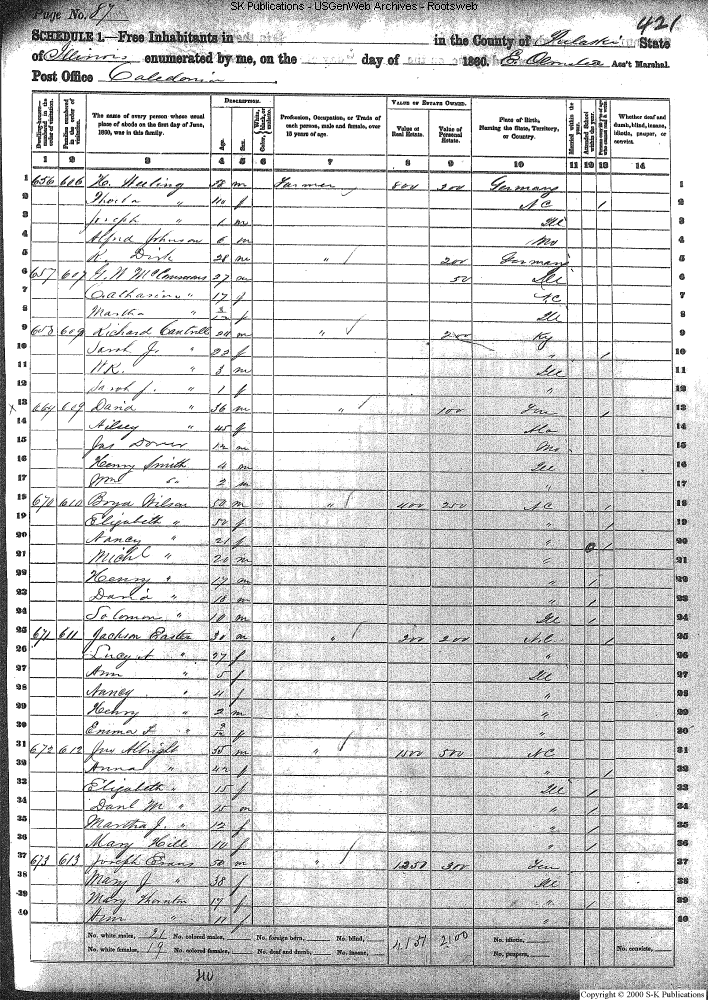 SK Publications - USGenWeb Archives - Rootsweb
Page No. 87
421
SCHEDULE 1.—Free Inhabitants in in the County of Pulaski State
of Illinois enumerated by me, on the day of 1860. Ass't Marshal.
Post Office Caledonia
Dwelling-houses—numbered in the order of visitation.
Families numbered in the order of visitation.
The name of every person whose usual place of abode on the first day of June, 1860, was in this family.
DESCRIPTION.
Age.
Sex.
Color, White, black, or mulatto.
Profession, Occupation, or Trade of each person, male and female, over 15 years of age.
VALUE OF ESTATE OWNED.
Value of Real Estate.
Value of Personal Estate.
Place of Birth, Naming the State, Territory, or Country.
Married within the year.
Attended School within the year.
Whether deaf and dumb, blind, insane, idiotic, pauper, or convict.
1 2 3 4 5 6 7 8 9 10 11 12 13 14
1 656 606 H. Heeling m Farmer 800 200 Germany 1
2 " 40 f NC / 2
3 Joseph " 1 m Ill 3
4 Alfred Johnson 6 m Mo 4
5 K. Dirk 28 m " 200 Germany 5
6 657 607 G. W. 27 m 50 Ill 6
7 Catharine " 17 f N.C. 7
8 Martha " 3/12 f Ill 8
9 658 608 Richard Cantrell 24 m " 200 Ky 9
10 Sarah J. " 22 f " / 10
11 W.K. " 3 m Ill 11
12 Sarah J. " 1 f " 12
13 669 609 David " 36 m " 100 Ten / 13
14 Ailsey " 45 f 14
15 Jas Dover 12 m Mo 15
16 Henry Smith 4 m Ill 16
17 Wm " 2 m " 17
18 670 610 Boyd Wilson 50 m " 400 250 N.C / 18
19 Elizabeth " 50 f " / 19
20 Nancy " 21 f " / 20
21 Michl " 20 m " 21
22 Henry " 17 m " / 22
23 David " 13 m " / 23
24 Solomon " 10 m Ill / 24
25 671 611 Jackson Easter 30 m " 200 200 N.C. / 25
26 Lucy A " 27 f " 26
27 Ann " 5 f Ill 27
28 Nancy " 4 f " 28
29 Henry " 2 m " 29
30 Emma F " f " 30
31 672 612 Jno Albright 55 m " 1500 500 NC 31
32 Anna " 42 f " / 32
33 Elizabeth " 15 f Ill / 33
34 Danl M " 15 m " / 34
35 Martha J. " 12 f " / 35
36 Mary Hill 10 f " / 36
37 673 613 Joseph Evans 50 m " 1250 300 Ten 37
38 Mary J " 38 f Ill 38
39 Mary Thornton 17 f " / 39
40 Ann " 11 f " 40
No. white males, 21 No. colored males, No. foreign born, No. blind, 4,151 2100 No. idiotic,
No. white females, 19 No. colored females, No. deaf and dumb, No. insane, No. paupers, No. convicts,
40
Copyright © 2000 S-K Publications